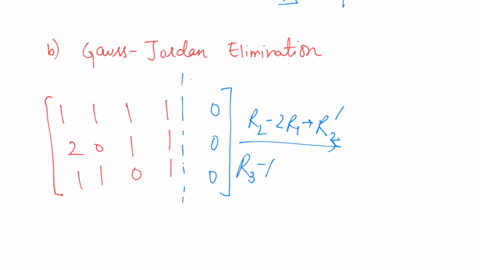 b) Gauss-Jordan Elimination
1 1 1 1 0
2 0 1 1 0
1 1 0 1 0
R2-2R1→R2'
R3-